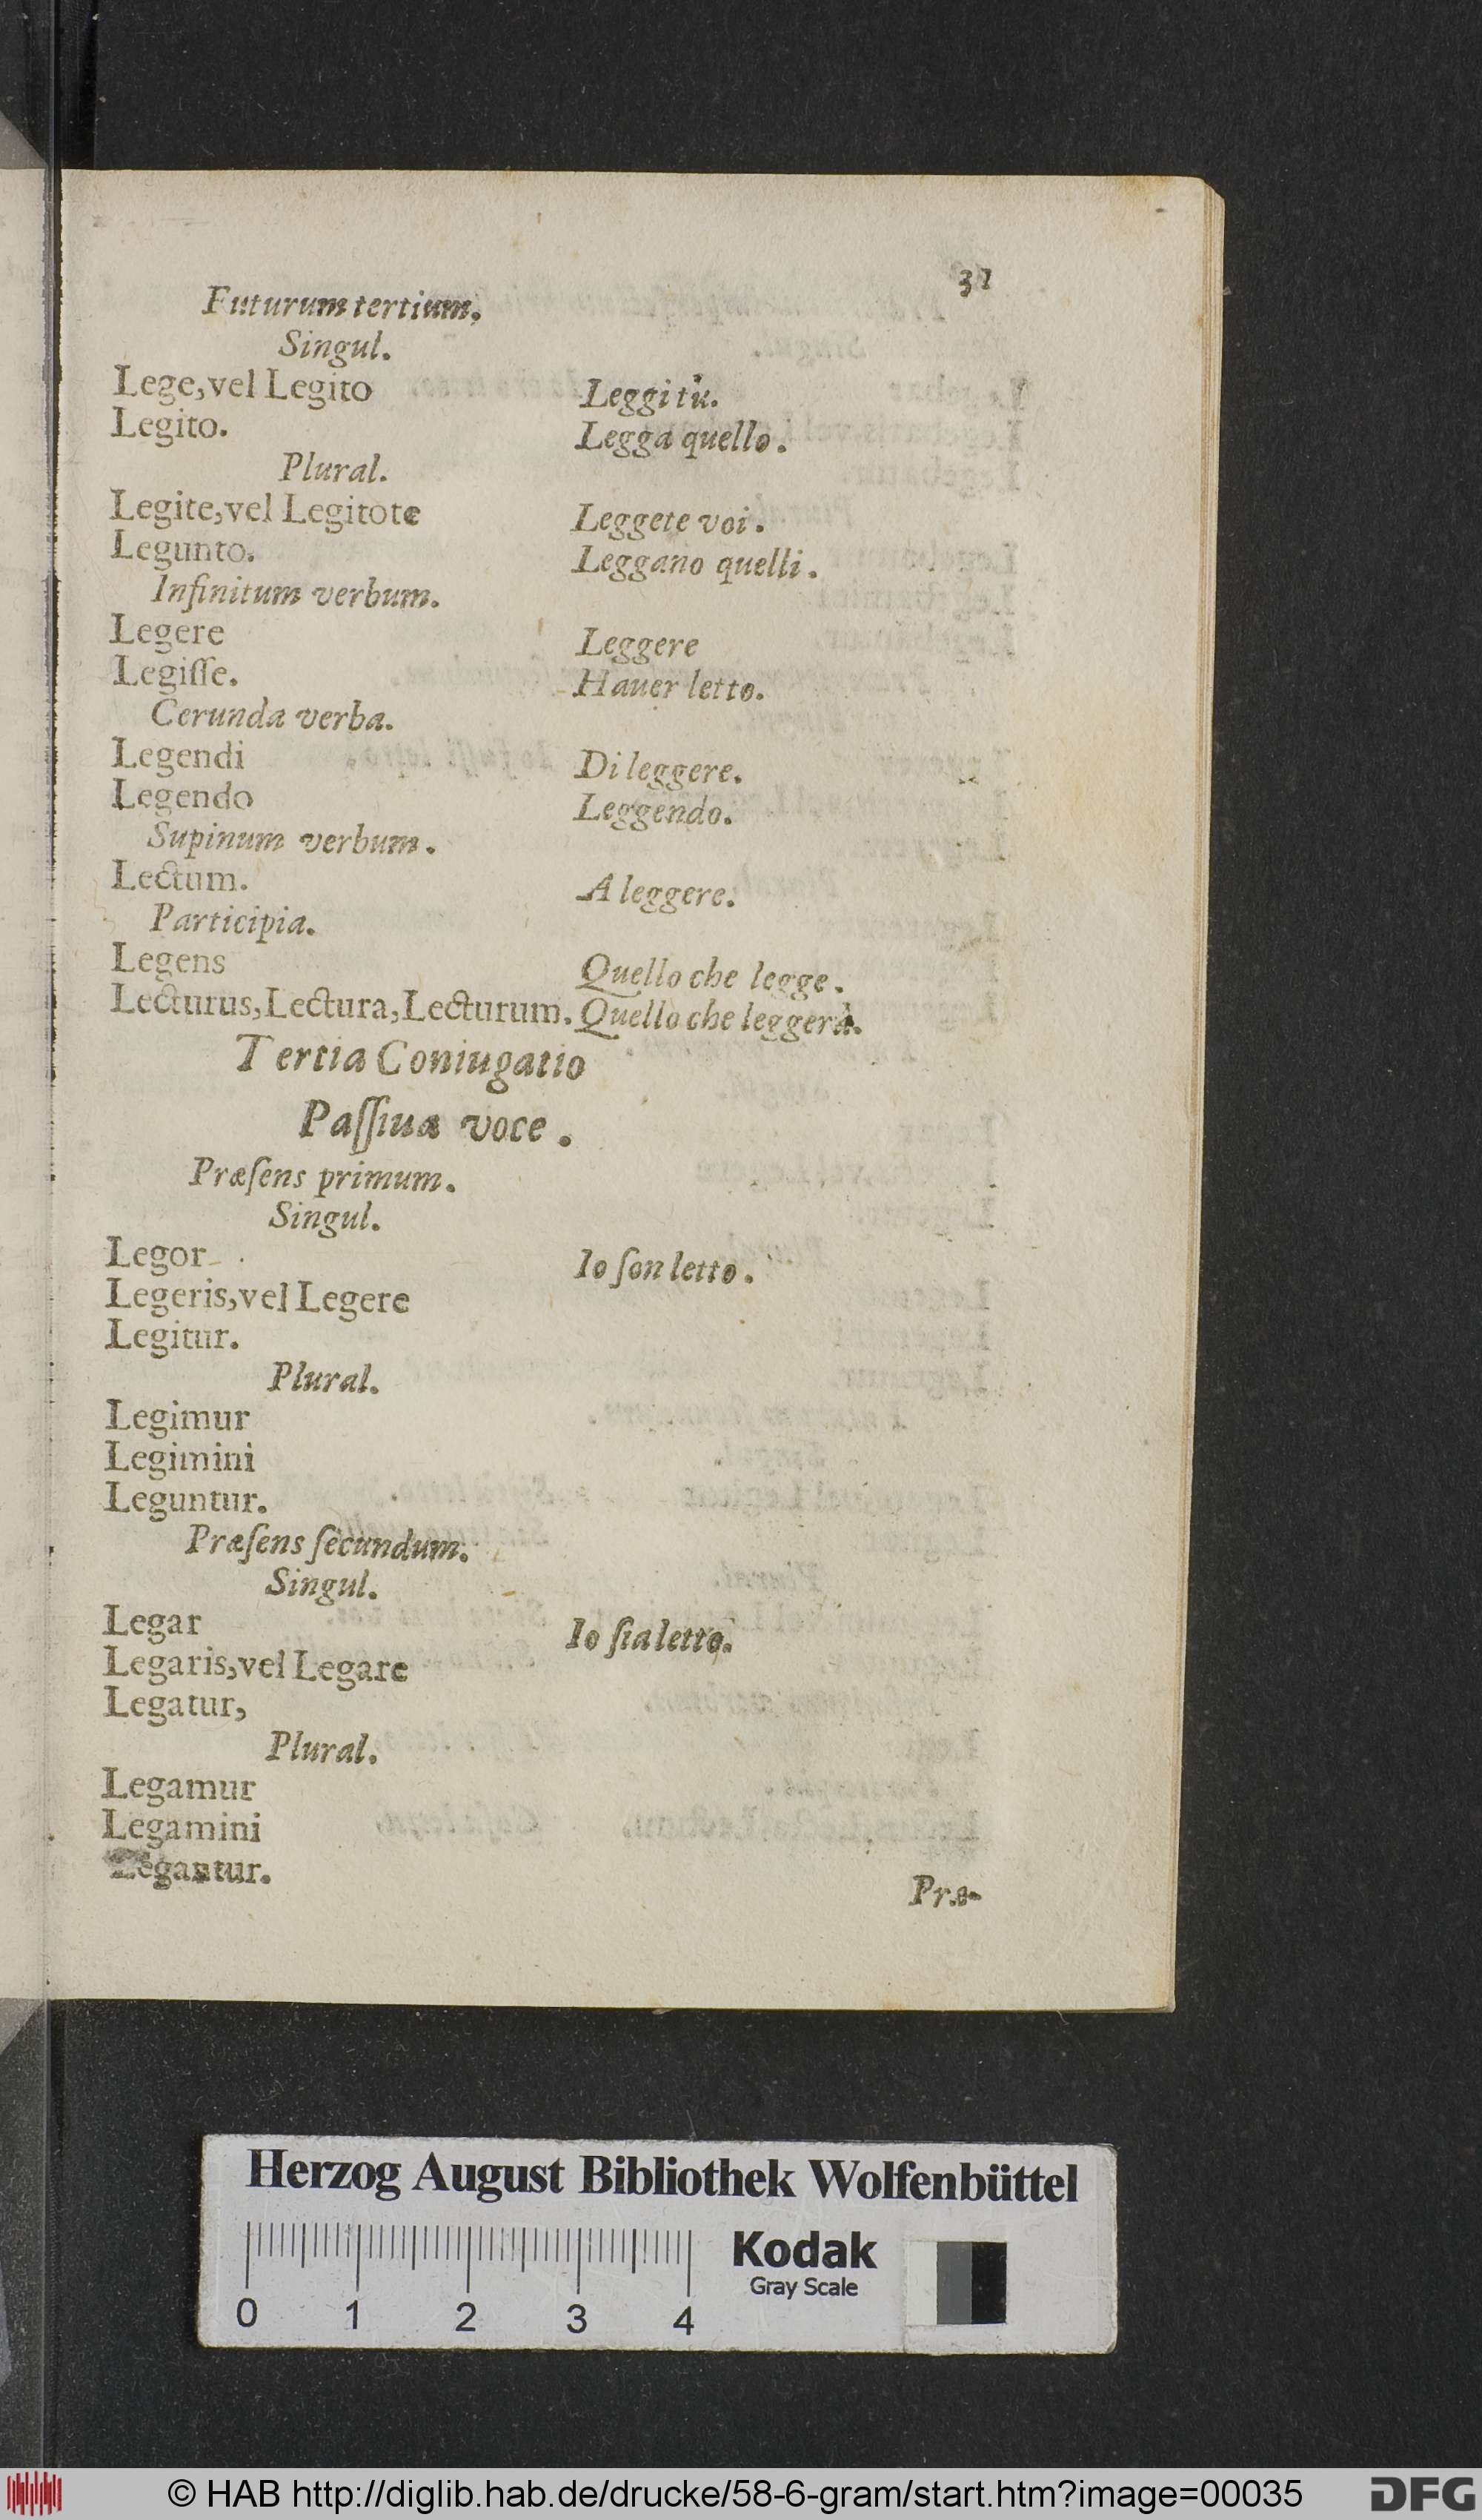 31
Futurum tertium.
Singul.
Lege, vel Legito Leggi tu.
Legito. Legga quello.
Plural.
Legite, vel Legitote Leggete voi.
Legunto. Leggano quelli.
Infinitum verbum.
Legere Leggere
Legiſſe. Hauer letto.
Cerunda verba.
Legendi Di leggere.
Legendo Leggendo.
Supinum verbum.
Lectum. A leggere.
Participia.
Legens Quello che legge.
Lecturus, Lectura, Lecturum. Quello che leggerà.
Tertia Coniugatio
Paſſiua voce.
Præſens primum.
Singul.
Legor Io ſon letto.
Legeris, vel Legere
Legitur.
Plural.
Legimur
Legimini
Leguntur.
Præſens ſecundum.
Singul.
Legar Io ſia letto.
Legaris, vel Legare
Legatur,
Plural.
Legamur
Legamini
Legantur.
Præ-
Herzog August Bibliothek Wolfenbüttel
Kodak
Gray Scale
0 1 2 3 4
© HAB http://diglib.hab.de/drucke/58-6-gram/start.htm?image=00035
DFG